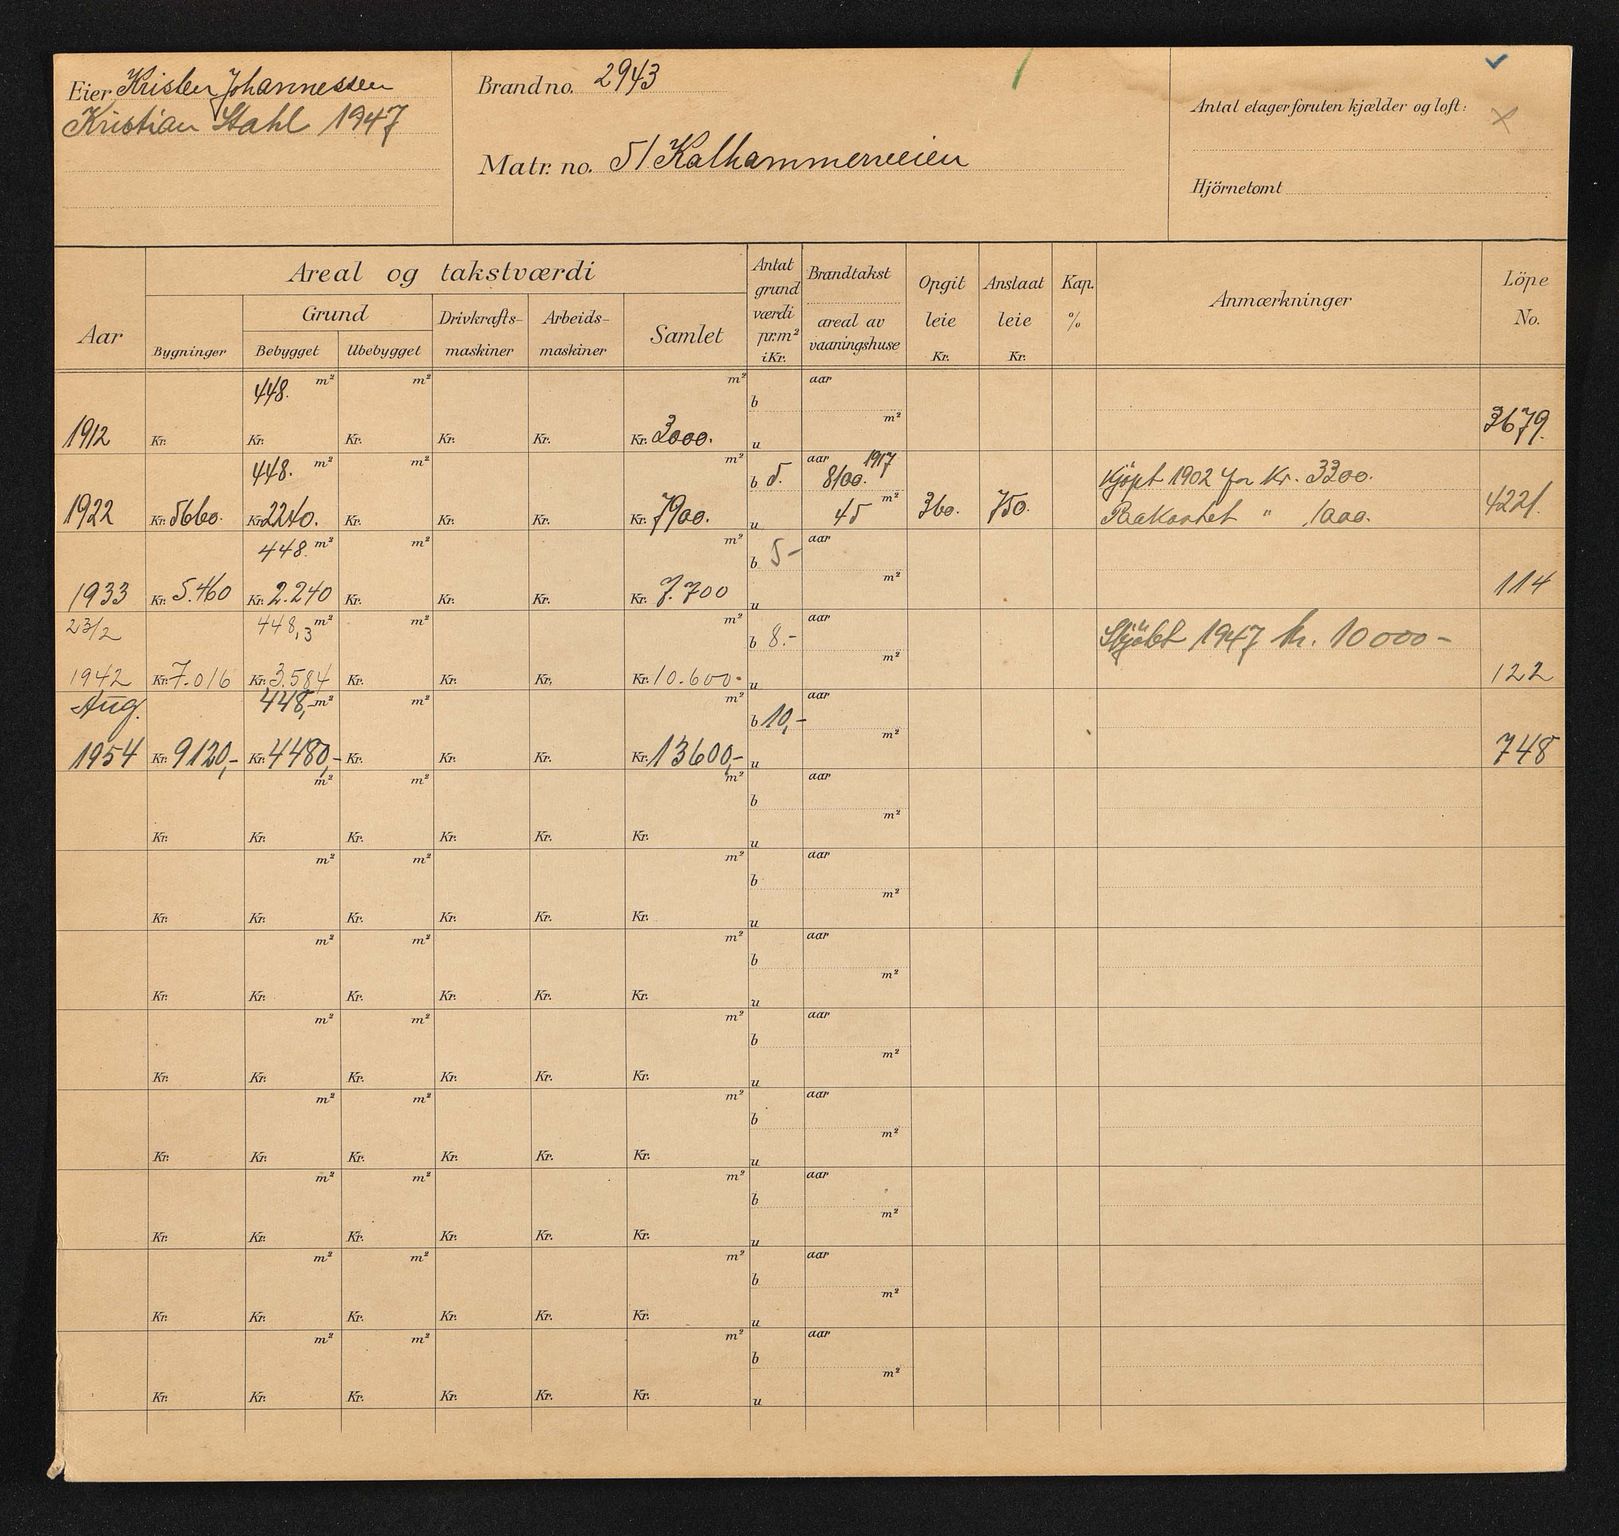 Eier Kristen Johannessen
Kristian Stahl 1947
Brand no. 2943
Matr. no. 51 Kalhammerveien
Antal etager foruten kjælder og loft: x
Hjörnetomt
Aar
Areal og takstværdi
Bygninger
Grund
Bebygget Ubebygget
Drivkrafts-
maskiner
Arbeids-
maskiner
Samlet
Antat
grund
værdi
pr. m²
i Kr.
Brandtakst
areal av
vaaningshuse
Opgit
leie
Kr.
Anslaat
leie
Kr.
Kap.
%
Anmærkninger
Löpe
No.
448. m² m² m² aar
b
m²
1912 Kr. Kr. Kr. Kr. Kr. Kr. 3000. u 3679.
448. m² m² m² b 5. aar 1917
8100. Kjöpt 1902 for Kr. 3300.
1922 Kr. 5660. Kr. 2240. Kr. Kr. Kr. Kr. 7900. u 45 m² 360. 750. Bekostet " 1000. 4221.
448. m² m² m² b 5- aar
m²
1933 Kr. 5.460 Kr. 2.240 Kr. Kr. Kr. Kr. 7.700 u 114
23/2 448,3 m² m² m² b 8.- aar Skjöbt 1947 kr. 10000-
m²
1942 Kr. 7.016 Kr. 3.584 Kr. Kr. Kr. Kr. 10.600- u 122
Aug. 448,- m² m² m² b 10,- aar
m²
1954 Kr. 9120,- Kr. 4480,- Kr. Kr. Kr. Kr. 13600,- u 748
m² m² m² aar
b
m²
Kr. Kr. Kr. Kr. Kr. Kr. u
m² m² m² aar
b
m²
Kr. Kr. Kr. Kr. Kr. Kr. u
m² m² m² aar
b
m²
Kr. Kr. Kr. Kr. Kr. Kr. u
m² m² m² aar
b
m²
Kr. Kr. Kr. Kr. Kr. Kr. u
m² m² m² aar
b
m²
Kr. Kr. Kr. Kr. Kr. Kr. u
m² m² m² aar
b
m²
Kr. Kr. Kr. Kr. Kr. Kr. u
m² m² m² aar
b
m²
Kr. Kr. Kr. Kr. Kr. Kr. u
m² m² m² aar
b
m²
Kr. Kr. Kr. Kr. Kr. Kr. u